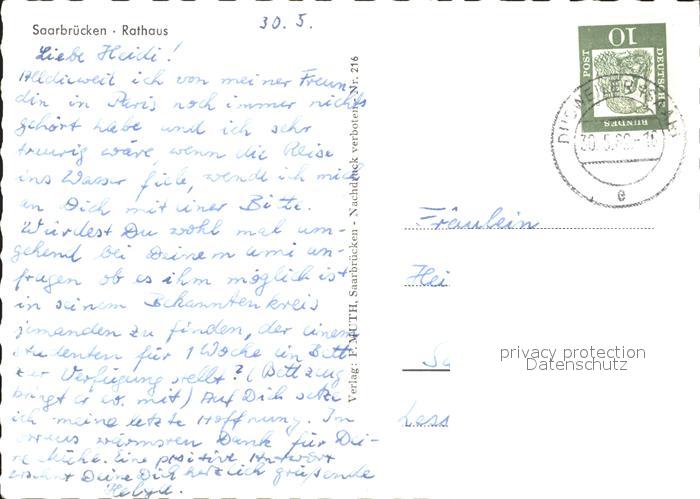 Saarbrücken · Rathaus
30. 5.
Liebe Heidi!
Alldieweil ich von meiner Freun-
din in Paris noch immer nichts
gehört habe und ich sehr
traurig wäre, wenn die Reise
ins Wasser fiele, wende ich mich
an Dich mit einer Bitte.
Würdest Du wohl mal um-
gehend bei Deinem ami an-
fragen ob es ihm möglich ist
in seinem Bekanntenkreis
jemanden zu finden, der einem
Studenten für 1 Woche ein Bett
zur Verfügung stellt? (Bettzeug
bringt er ev. mit) Auf Dich setze
ich meine letzte Hoffnung. Im
voraus wärmsten Dank für Dei-
ne Mühe. Eine positive Antwort
ersehnt Deine Dich herzlich grüßende
Verlag: P. MUTH, Saarbrücken · Nachdruck verboten · Nr. 216
10
DEUTSCHE
BUNDES
POST
30.5.
e
Fräulein
Hei
Sa
privacy protection
Datenschutz